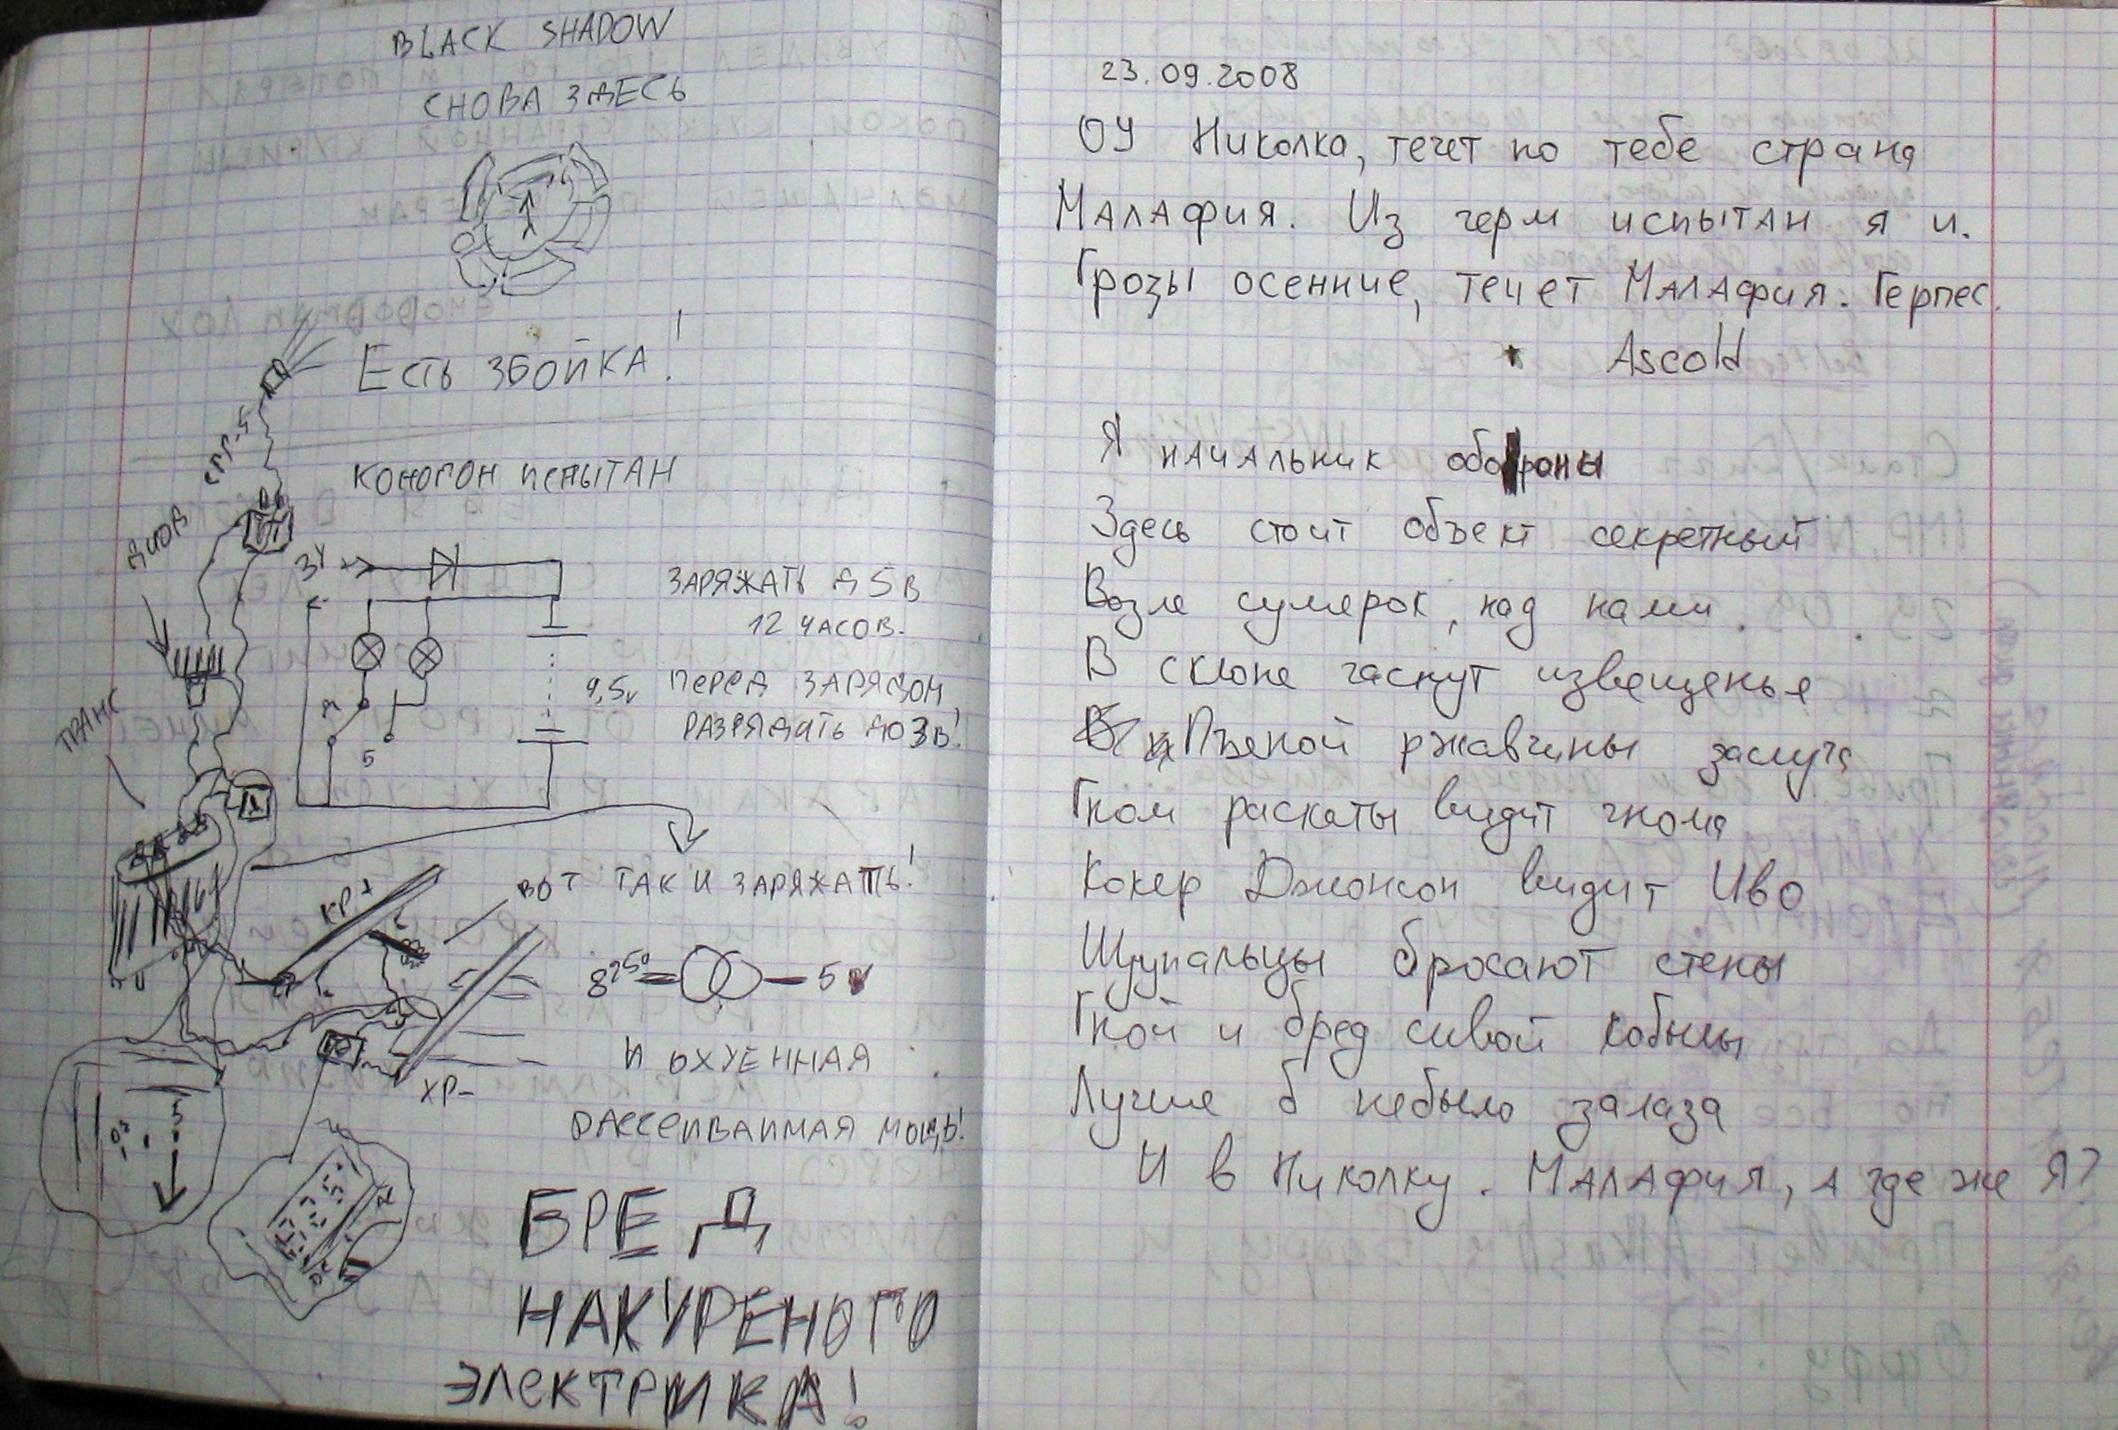 BLACK SHADOW
СНОВА ЗДЕСЬ
Есть збойка!
КОНОГОН ИСПЫТАН
ДИОД
ЗУ
ЗАРЯЖАТЬ
5В
12 ЧАСОВ.
4,5v
ПЕРЕД ЗАРЯДОМ,
РАЗРЯДИТЬ ДО 3В!
Б
ТРАНС
ВОТ ТАК И ЗАРЯЖАТЬ!
КР+
825v
5v
И ОХУЕННАЯ
РАССЕИВАИМАЯ МОЩЬ!
ХР-
БРЕД
НАКУРЕНОГО
ЭЛЕКТРИКА!
23.09.2008
ОУ Николка, течет по тебе страна
Малафия. Из герм испытан я и.
Грозы осенние, течет Малафия. Герпес.
Ascold
Я начальник обороны
Здесь стоит объект секретный
Возле сумерок, над нами.
В склоне гаснут извещенья
Пьеной ржавчины заслуга
Гном раскаты видит гнома
Кокер Джонсон видит Иво
Щупальцы бросают стены
Гной и бред сивой кобылы
Лучше б небыло залаза
И в Николку. Малафия, а где же Я?